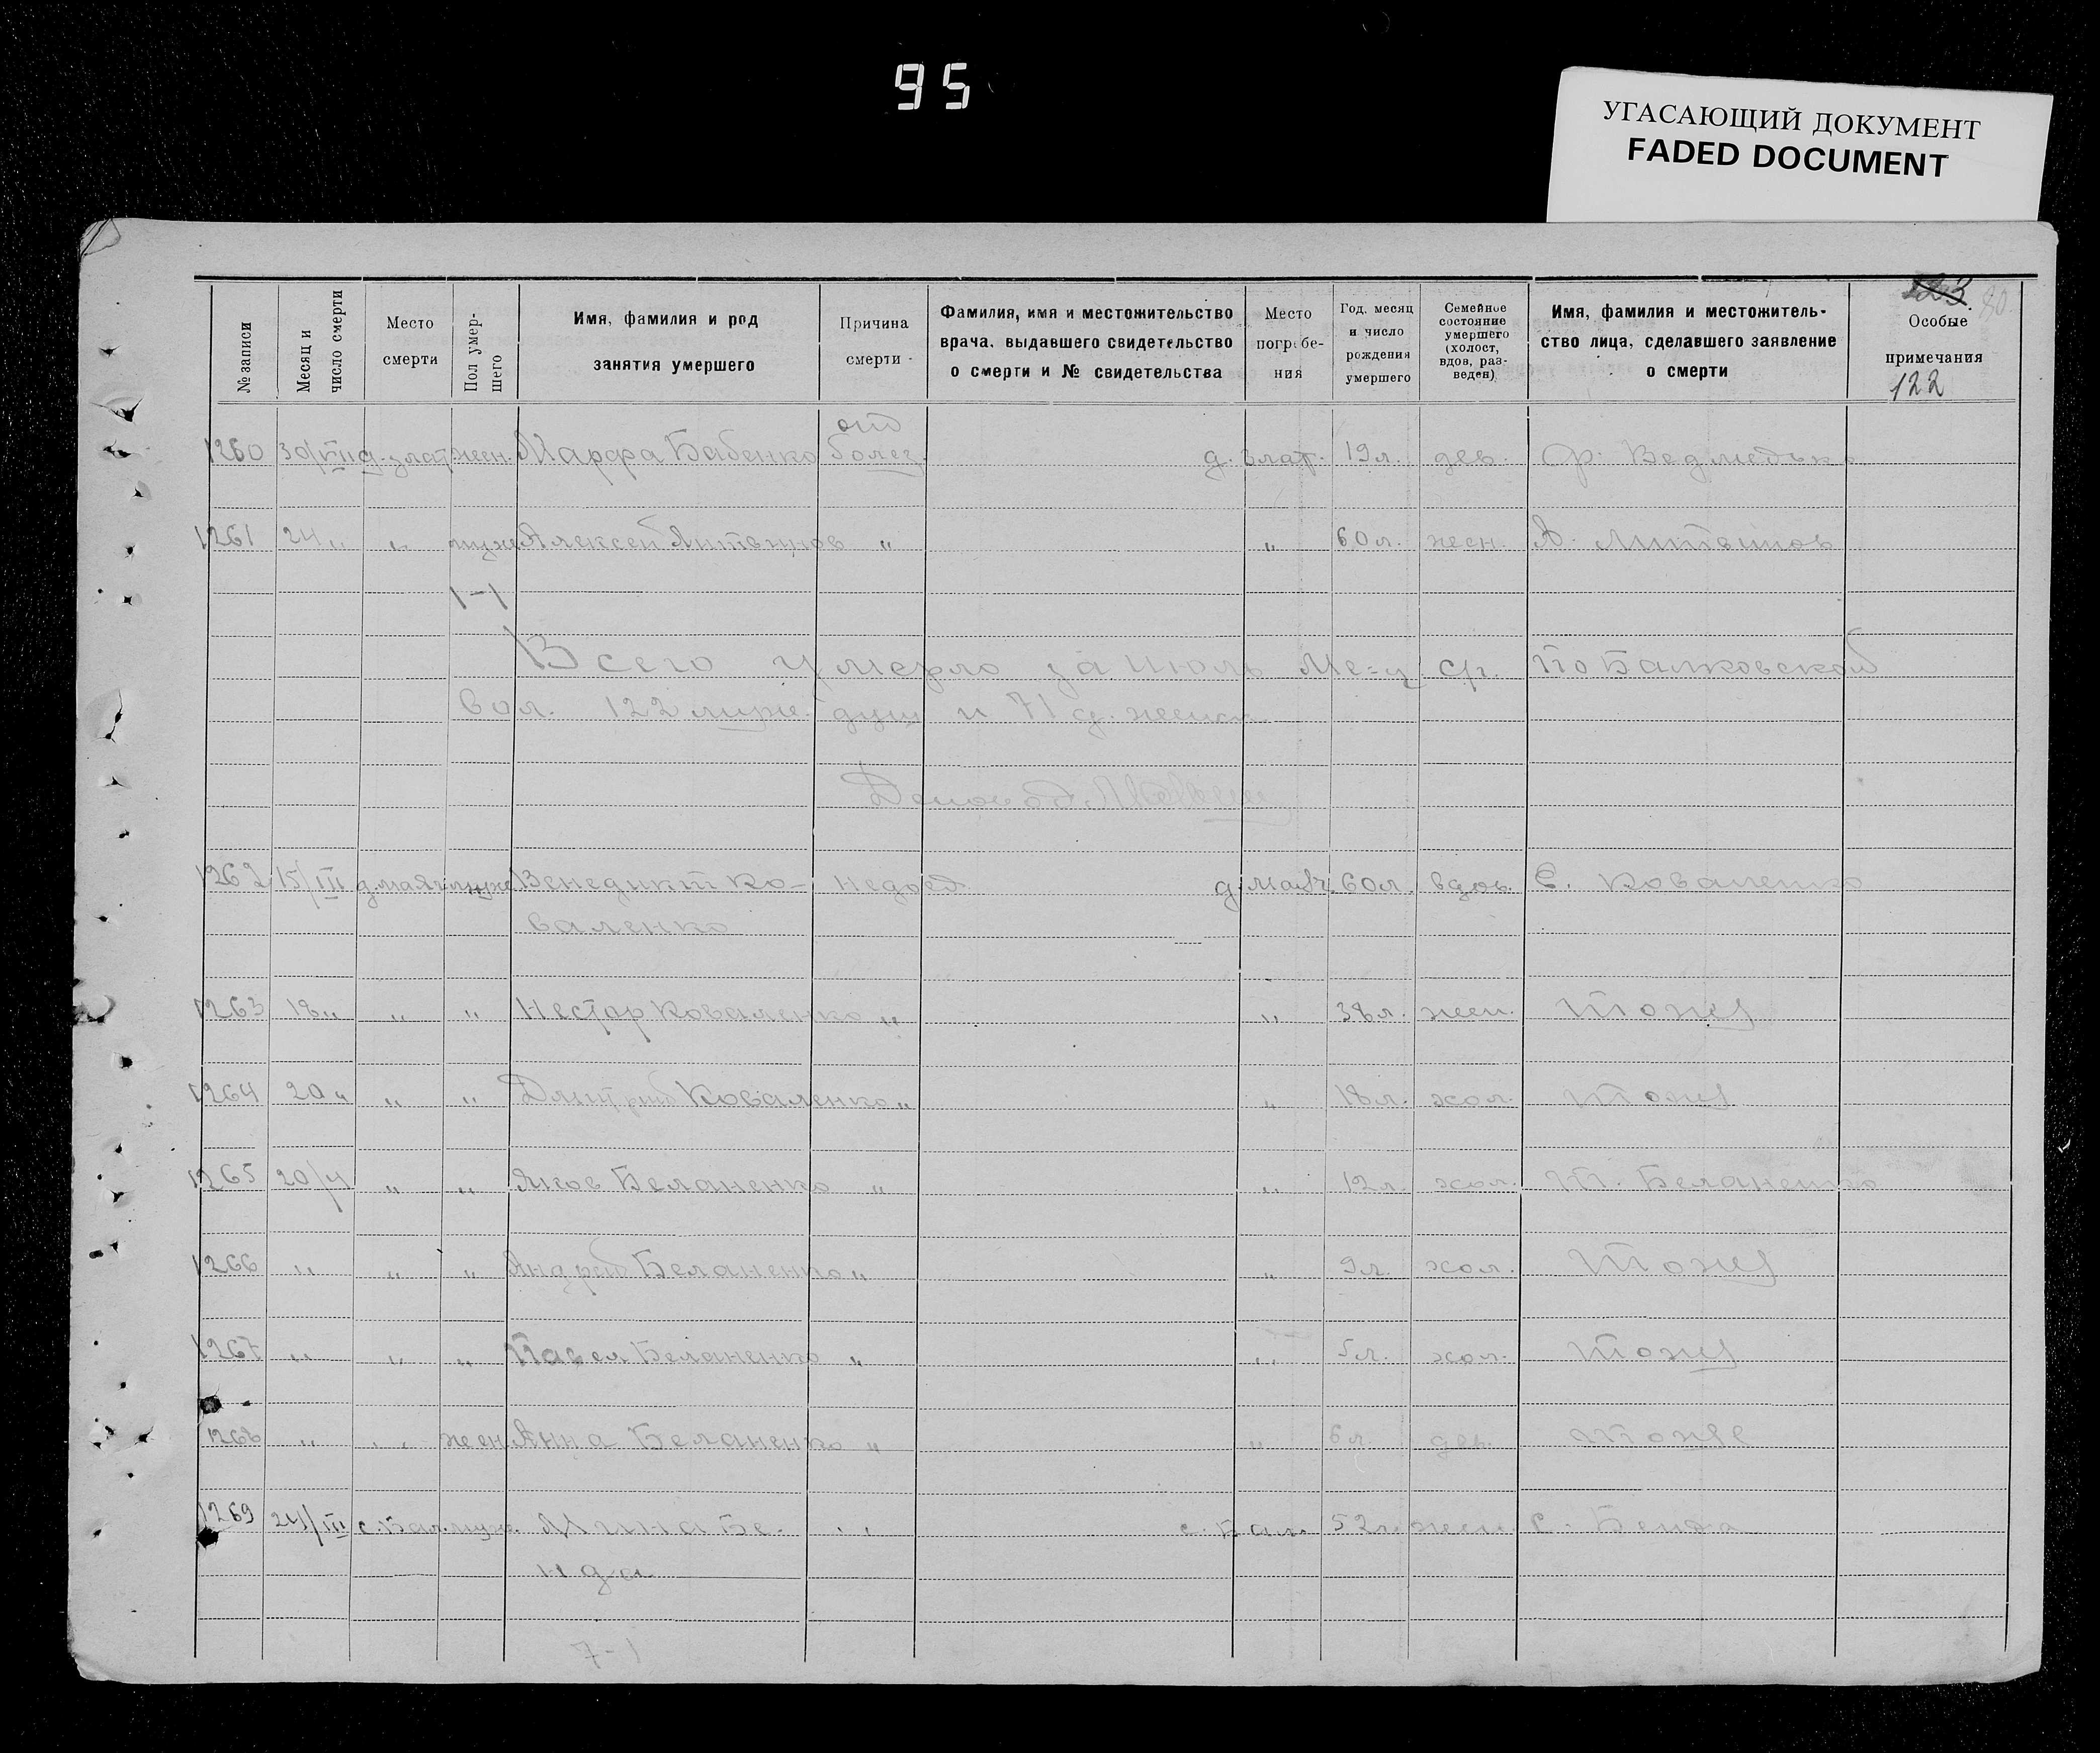 95
УГАСАЮЩИЙ ДОКУМЕНТ
FADED DOCUMENT
№ записи
Месяц и число смерти
Место смерти
Пол умер-шего
Имя, фамилия и род занятия умершего
Причина смерти
Фамилия, имя и местожительство врача, выдавшего свидетельство о смерти и № свидетельства
Место погребе-ния
Год, месяц и число рождения умершего
Семейное состояние умершего (холост, вдов, раз-веден)
Имя, фамилия и местожитель-ство лица, сделавшего заявление о смерти
123 80
Особые примечания
122
1260 30/VII д. злат жен. Марфа Бабенко от болез. д. злат. 19 л. дев. Ф. Ведмедько
1261 24 " " муж Алексей Литвинов " " 60 л. жен. А. Литвинов
1-1
Всего умерло за июль Ме=ц с/г. По Балковской
вол. 122 муж. душ и 71 д. женск.
1262 15/III муж Венедикт Ко- недоед. 60 л. вдов. С. Коваленко
валенко
1263 18 " " " Нестор Коваленко " " 38 л. жен. Тоже
1264 20 " " " Дмитрий Коваленко " " 18 л. хол. Тоже
1265 20/4 " " Яков Беланенко " " 12 л. хол. Т. Беланенко
1266 " " " Андрей Беланенко " " 9 л. хол. Тоже
1267 " " " Павел Беланенко " " 5 л. хол. Тоже
1268 " " жен Анна Беланенко " " 6 л. дев. Тоже
1269 24/III с. Бал. муж. Мина Бе- " с. Бал. 52 л. жен. С. Бенда
нда
7-1